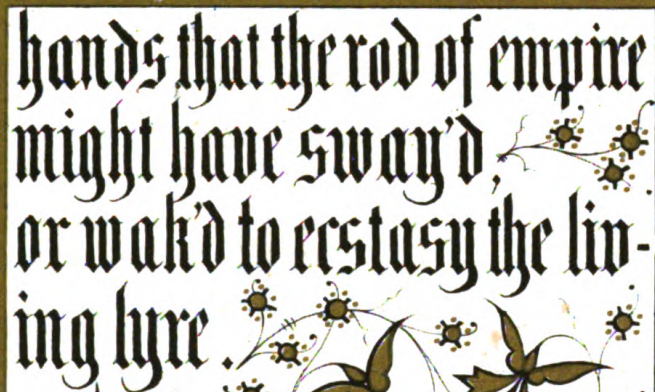 hands that the rod of empire
might have sway'd,
or wak'd to ecstasy the liv-
ing lyre.